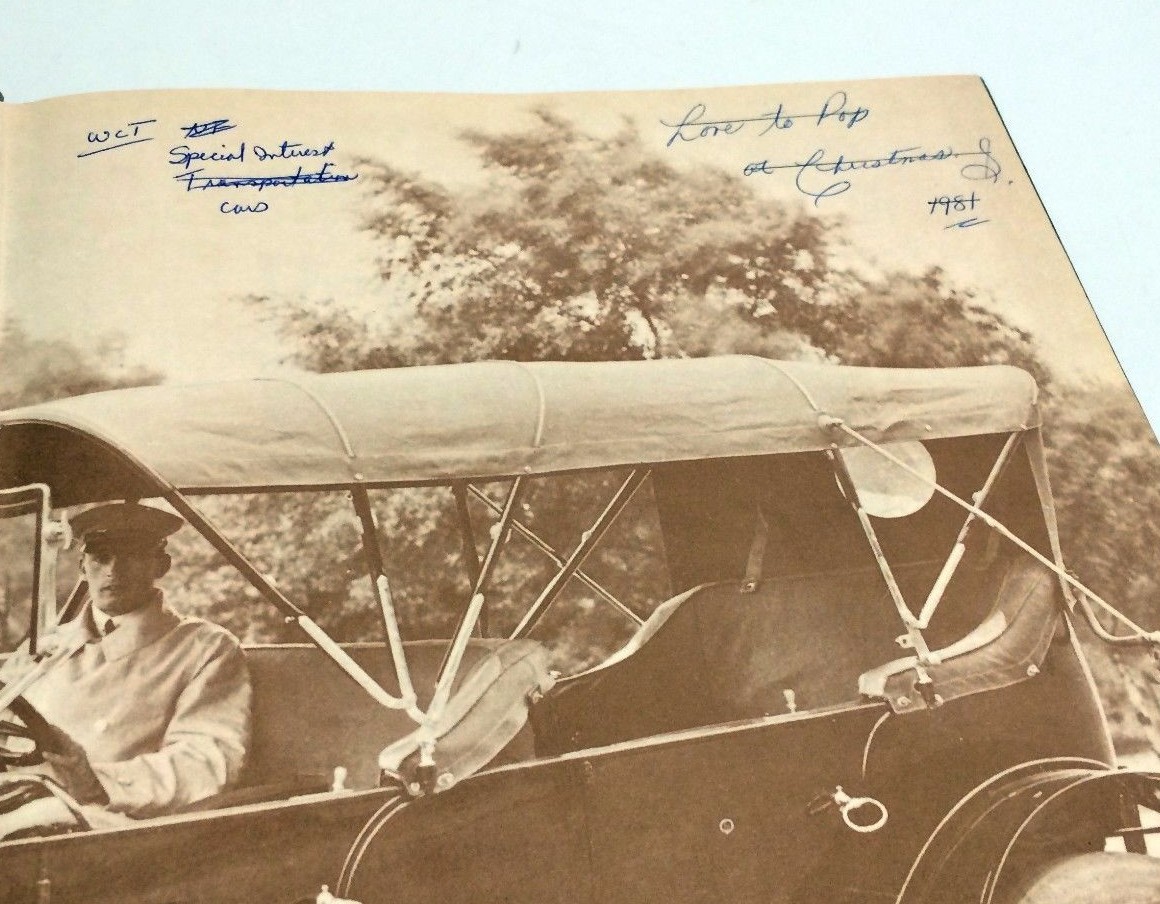 WCT
Special Interest
Transportation
cars
Love to Pop
at Christmas
1981